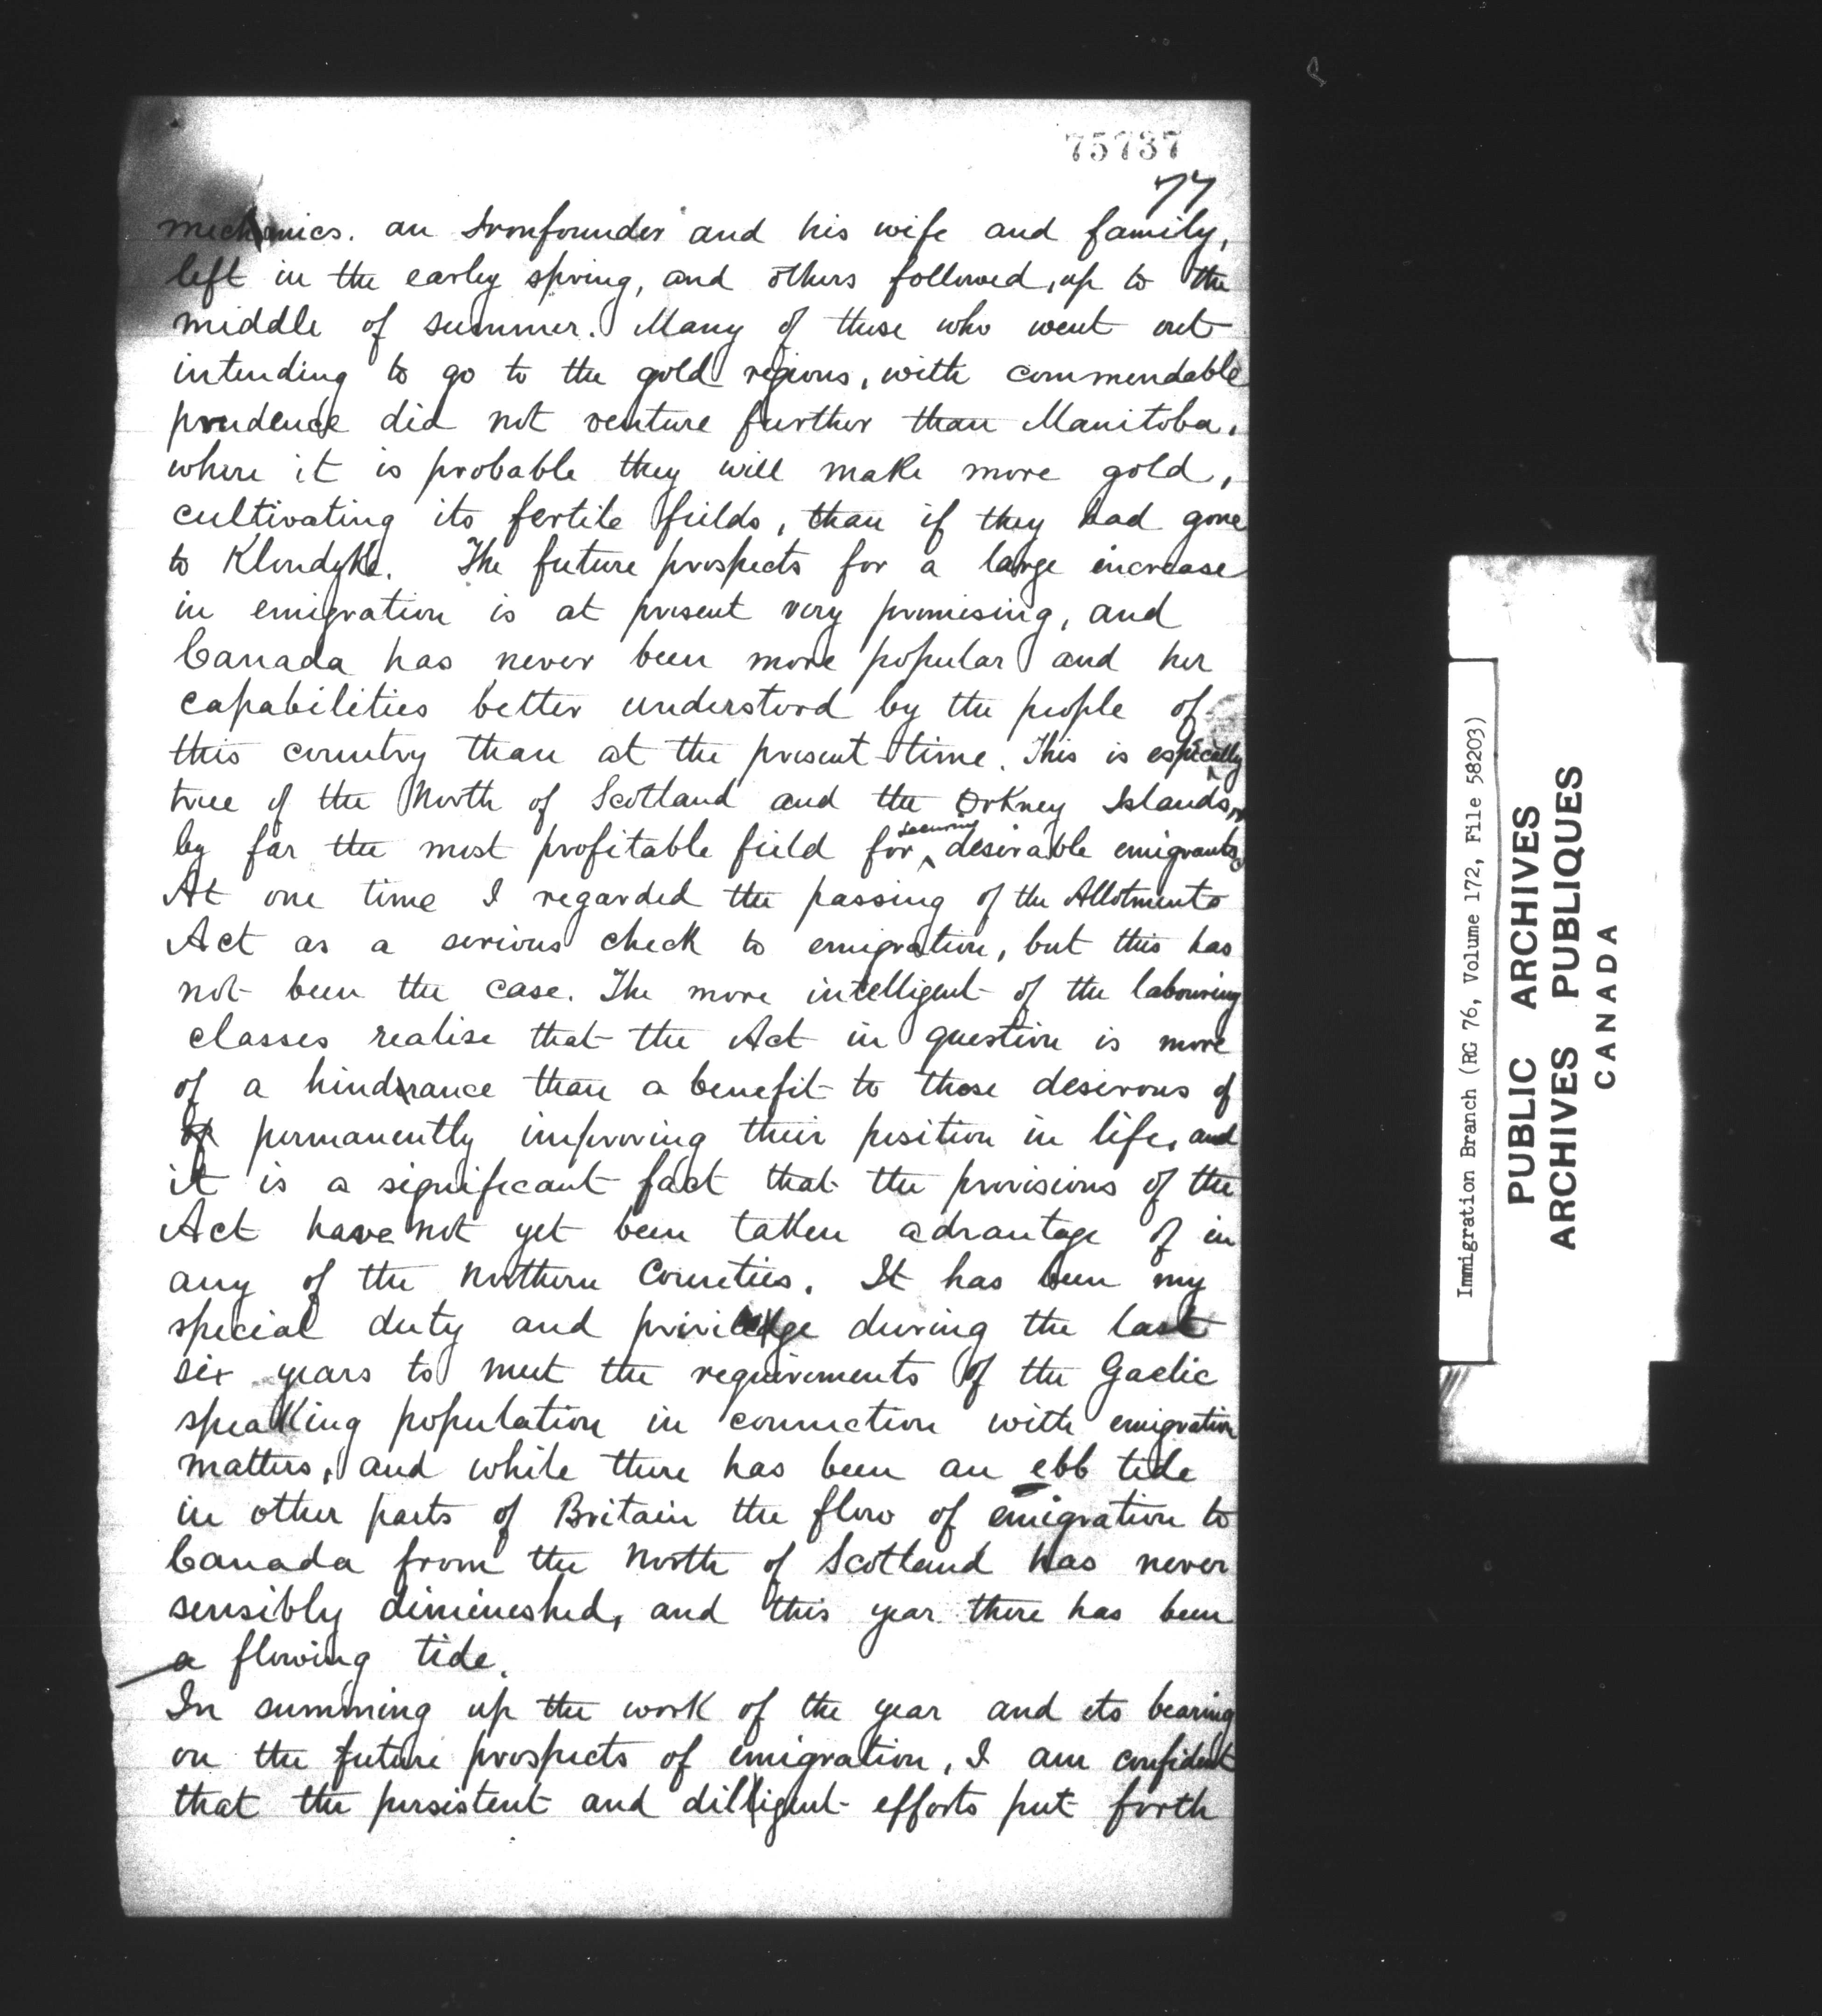 75737
77
mechanics. an Ironfounder and his wife and family,
left in the early spring, and others followed, up to the
middle of summer. Many of those who went out
intending to go to the gold regions, with commendable
prudence did not venture further than Manitoba,
where it is probable they will make more gold,
cultivating its fertile fields, than if they had gone
to Klondyke. The future prospects for a large increase
in emigration is at present very promising, and
Canada has never been more popular and her
capabilities better understood by the people of
this country than at the present time. This is especially
true of the North of Scotland and the Orkney Islands,
by far the most profitable field for securing desirable emigrants.
At one time I regarded the passing of the Allotments
Act as a serious check to emigration, but this has
not been the case. The more intelligent of the labouring
classes realise that the Act in question is more
of a hindrance than a benefit to those desirous of
of permanently improving their position in life, and
it is a significant fact that the provisions of the
Act have not yet been taken advantage of in
any of the Northern Counties. It has been my
special duty and privilege during the last
six years to meet the requirements of the Gaelic
speaking population in connection with emigration
matters, and while there has been an ebb tide
in other parts of Britain the flow of emigration to
Canada from the North of Scotland has never
sensibly diminished, and this year there has been
a flowing tide.
In summing up the work of the year and its bearing
on the future prospects of emigration, I am confident
that the persistent and diligent efforts put forth
Immigration Branch (RG 76, Volume 172, File 58203)
PUBLIC ARCHIVES
ARCHIVES PUBLIQUES
CANADA